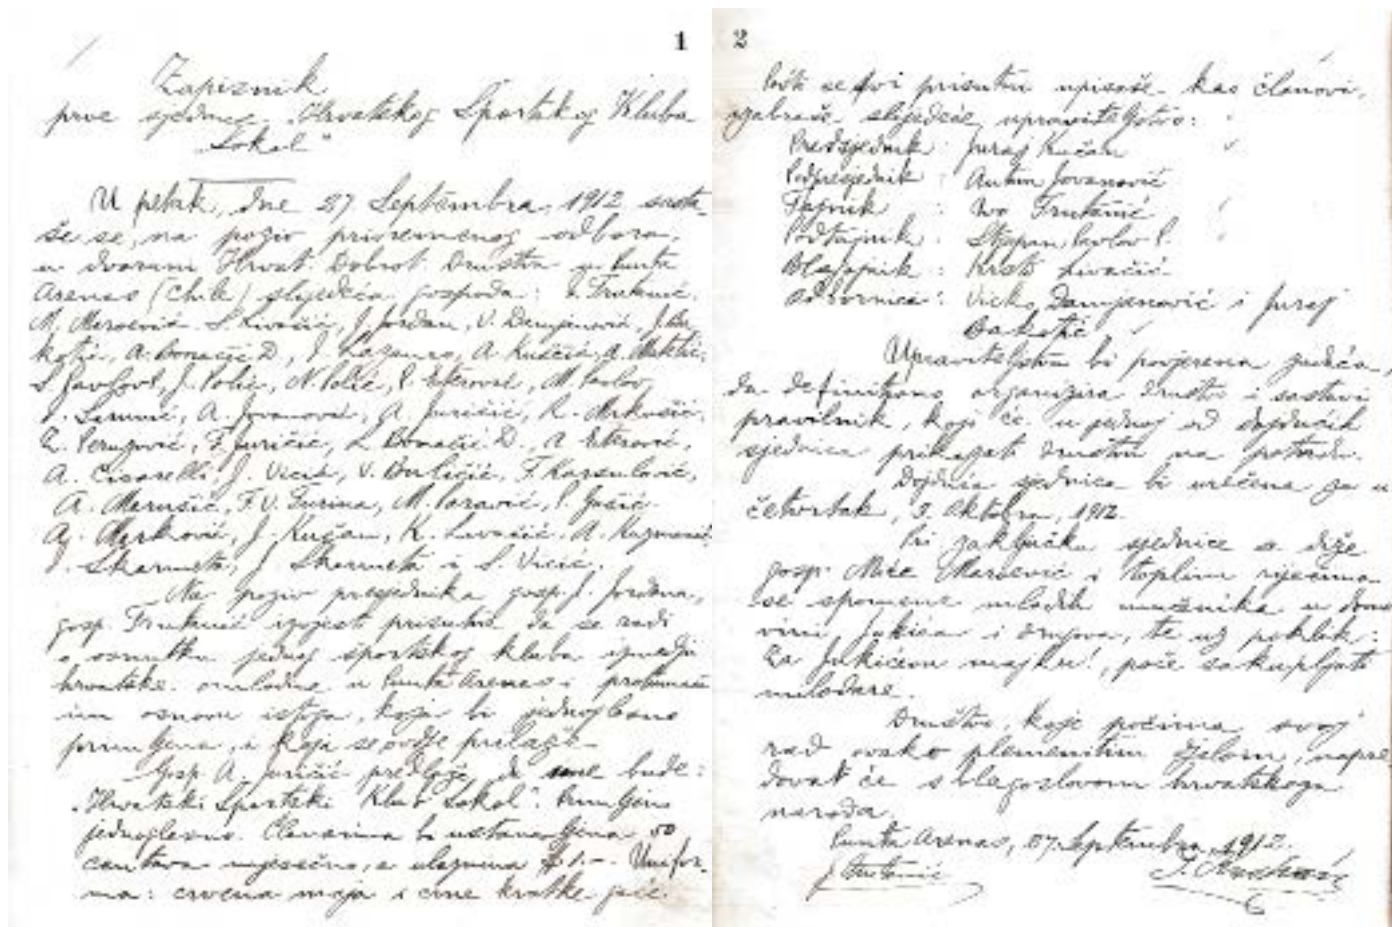 1
Zapisnik
prve sjednice „Hrvatskog Sportskog Kluba
Sokol"
U petak, dne 27 Septembra, 1912 sasta-
še se, na poziv privremenog odbora,
u dvorani Hrvat. Dobrot. Društva u Punta
Arenas (Chile) slijedeća gospoda: I. Trutanić,
M. Marsević, S. Livačić, J. Jordan, V. Damjanović, J. Ba
kotić, A. Bonačić D.,
S. Pavlov P., J. Polić, N. Polić, P. Eterović, M. Pavlov,
A. Jovanović, A. Juričić,
F. Juričić, L. Bonačić D., A. Eterović,
A. Cicarelli, J. Vicić, V. Buličić, F. Karsulović,
A. Marušić,
A. Marković, J. Kučan, K. Livačić,
J. Skarmeta i S. Vicić.
Na poziv presjednika gosp. J. Jordana,
gosp. Trutanić izvjesti prisutne da se radi
o osnutku jednog sportskog kluba izmedju
hrvatske omladine u Punta Arenas i protumači
im osnovu istoga, koja bi jednoglasno
primljena, i koja se ovdje prilaže.
Gosp. A. Juričić predloži, da ime bude:
„Hrvatski Sportski Klub Sokol". Primljeno
jednoglasno. Članarina bi ustanovljena 50
centava mjesečno, a ulaznina $ 1.-- Unifor-
ma: crvena maja i crne kratke gaće.
2
Pošto se svi prisutni upisaše kao članovi,
izabraše slijedeće upraviteljstvo:
Predsjednik: Juraj Kučan
Podpresjednik: Antun Jovanović
Tajnik: Ivo Trutanić
Podtajnik: Stjepan Pavlov P.
Blagajnik: Krsto Livačić
Odbornici: Vicko Damjanović i Juraj
Bakotić
Upraviteljstvu bi povjerena zadaća,
da definitivno organizira društvo i sastavi
pravilnik, koji će u jednoj od dojdućih
sjednica prikazati društvu na potvrdu.
Dojduća sjednica bi urečena za u
četvrtak, 3. Oktobra, 1912.
Pri zaključku sjednice se diže
gosp. Mićo Marsević i toplim riječima
se spomene mladih mučenika u domo
vini, Jukića i drugova, te uz poklik:
Za Jukićevu majku!, poče sakupljati
milodare.
Društvo, koje počima svoj
rad ovako plemenitim djelom, napre
dovat će s blagoslovom hrvatskoga
naroda.
Punta Arenas, 27. Septembra, 1912.
J. Trutanić